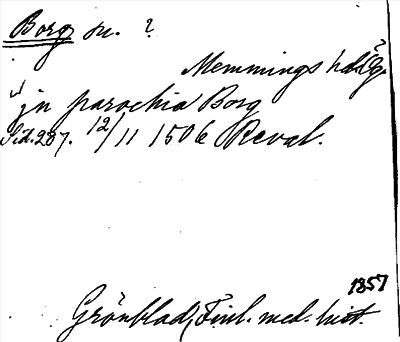 Borg sn. ?
Memmings hd.
"in parochia Borg
Sid. 287. 12/11 1506 Reval.
1857
Grönblad, Finl. med. hist.